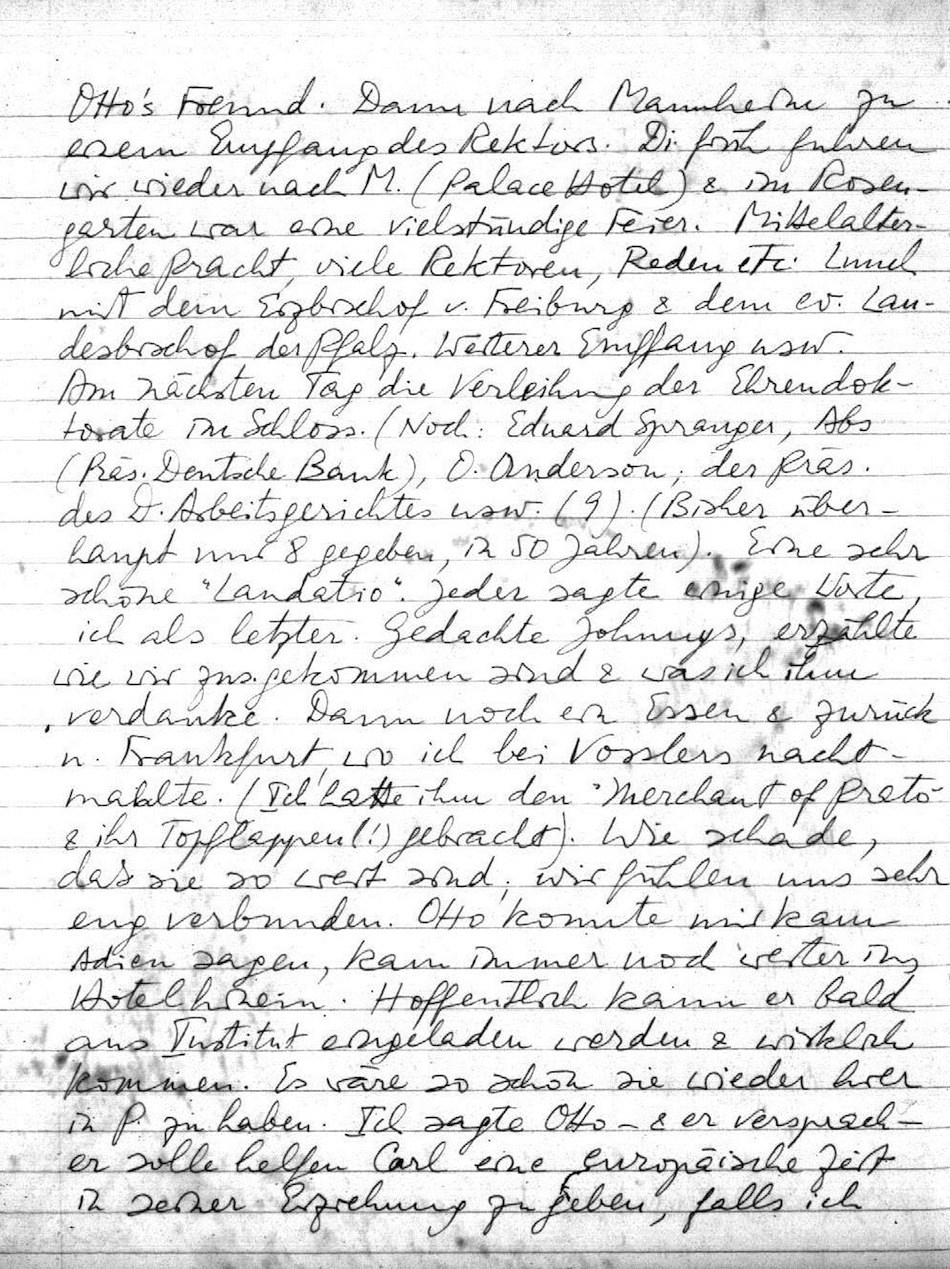 Otto's Freund. Dann nach Mannheim zu
einem Empfang des Rektors. Di. früh fuhren
wir wieder nach M. (Palace Hotel) & im Rosen-
garten war eine vielstündige Feier. Mittelalter-
liche Pracht, viele Rektoren, Reden etc. Lunch
mit dem Erzbischof v. Freiburg & dem ev. Lan-
desbischof der Pfalz. Weiterer Empfang usw.
Am nächsten Tag die Verleihung der Ehrendok-
torate im Schloss. (Noch: Eduard Spranger, Abs
(Präs. Deutsche Bank), O. Anderson, der Präs.
des D. Arbeitsgerichtes usw. (9). (Bisher über-
haupt nur 8 gegeben, in 50 Jahren). Eine sehr
schöne "Laudatio". Jeder sagte einige Worte,
ich als letzter. Gedachte Johnnys, erzählte
wie wir zus. gekommen sind & was ich ihm
verdanke. Dann noch ein Essen & zurück
n. Frankfurt, wo ich bei Vosslers nacht-
mahlte. (Ich hatte ihm den "Merchant of Prato"
& ihr Topflappen (!) gebracht). Wie schade,
das sie so weit sind; wir fühlen uns sehr
eng verbunden. Otto konnte mir kaum
Adieu sagen, kam immer noch weiter ins
Hotel hinein. Hoffentlich kann er bald
ans Institut eingeladen werden & wirklich
kommen. Es wäre so schön sie wieder hier
in P. zu haben. Ich sagte Otto – & er versprach –
er solle helfen Carl eine europäische Zeit
in seiner Erziehung zu geben, falls ich